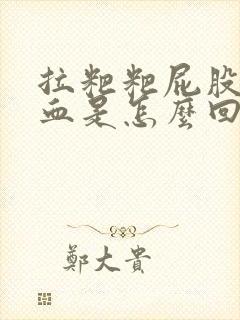 拉粑粑屁股
血是怎麼回
鄭大貴